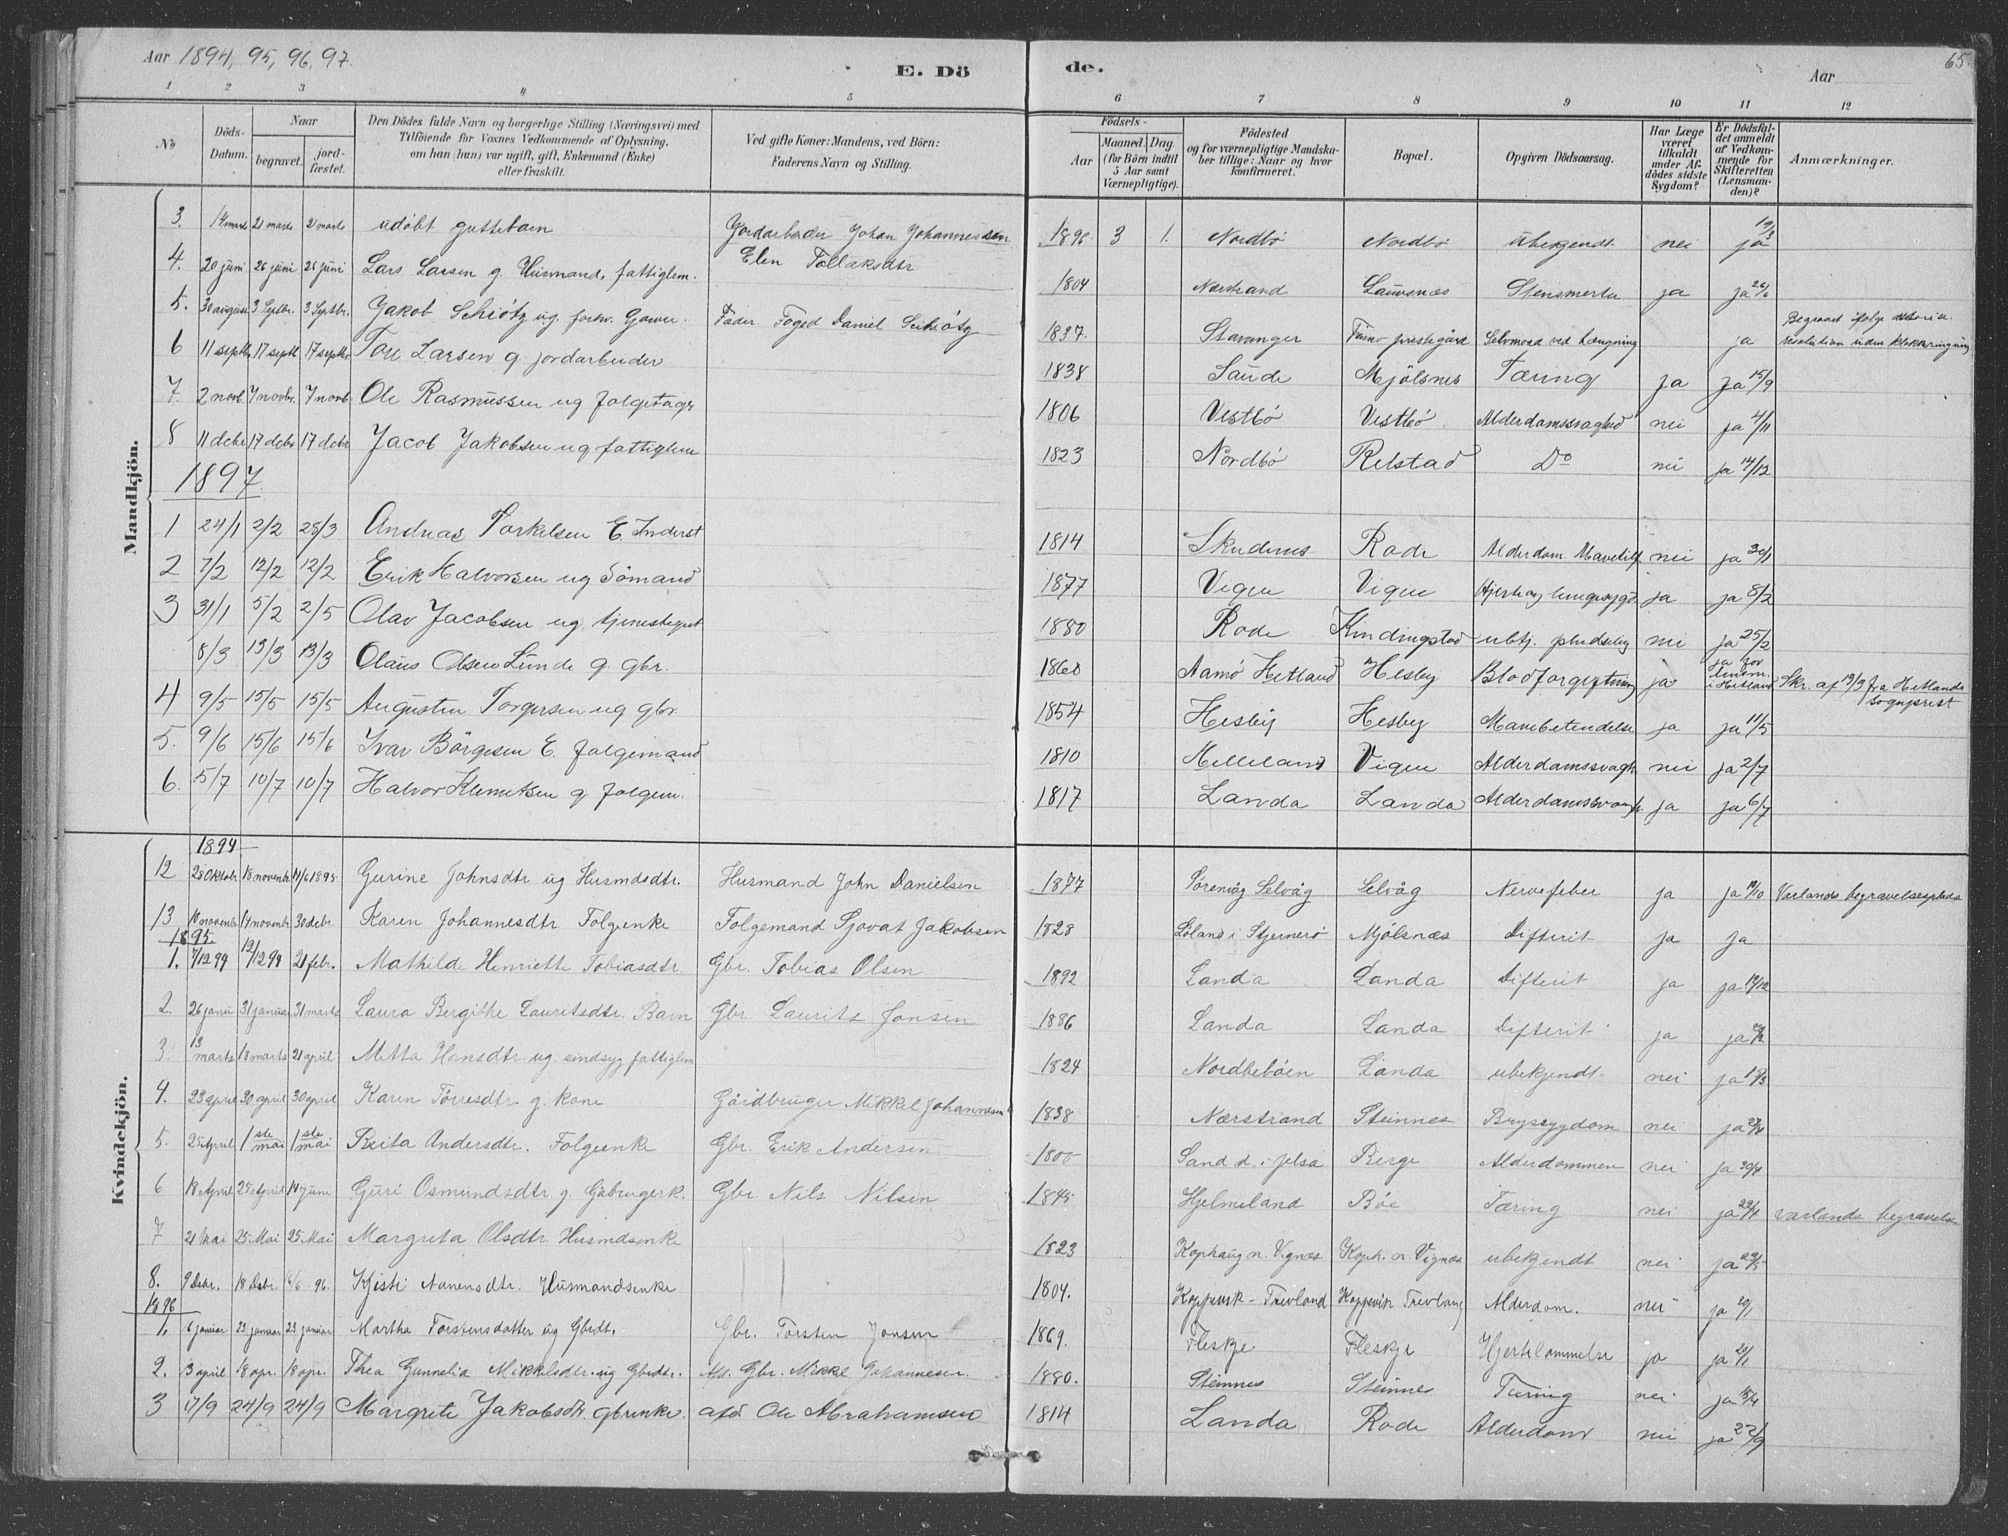 Aar 1894, 95, 96, 97.
E. Dö
de.
Aar
65
1 2 3 4 5 6 7 8 9 10 11 12
No
Döds-Datum.
Naar
begravet.
jord-fæstet.
Den Dödes fulde Navn og borgerlige Stilling (Næringsvei) med
Tilföiende for Voxnes Vedkommende af Oplysning,
om han (hun) var ugift, gift, Enkemand (Enke)
eller fraskilt.
Ved gifte Koner: Mandens, ved Börn:
Faderens Navn og Stilling.
Födsels-
Aar
Maaned. Dag.
(for Börn indtil
5 Aar samt
Værnepligtige).
Födested
og for værnepligtige Mandska-
ber tillige: Naar og hvor
konfirmeret.
Bopæl.
Opgiven Dödsaarsag.
Har Læge
været
tilkaldt
under Af-
dödes sidste
Sygdom?
Er Dödsfal-
det anmeldt
af Vedkom-
mende for
Skifteretten
(Lensman-
den)?
Anmærkninger.
Mandkjön.
3. 14 marts 21 marts 21 marts udøbt guttebarn Jordarbeider Johan Johannessen Elen Tollaksdtr 1896 3 1. Nordbö Nordbö ubekjendt nei ja 19/3
4. 20 juni 26 juni 26 juni Lars Larsen g. Husmand, fattiglem. 1804 Nærstrand Lauvsnæs Stensmerter ja ja 20/6
5. 30 august 3 Septbr. 3 Septbr. Jakob Schiötz ug. forhv. Gaver. Fader Foged Daniel Schiötz 1837. Stavanger prestegård Selvmord ved hængning ja Begravet ifølge resolution uden klokkeringning
6 11 septbr 17 septb 17 septbr Tore Larsen g jordarbeider 1838 Saude Mjölsnes Tæring ja ja 15/9
7. 2 novb 7 novbr. 7 novb Ole Rasmussen ug folgetager 1806 Vestbö Vestbö Alderdomssvaghed nei ja 4/11
8 11 decbr 17 decbr 17 decbr Jacob Jakobsen ug fattiglem 1823 Nordbö Relstad Do nei ja 14/12
1897
1 24/1 2/2 28/3 Andreas Torkelsen E. Inderst 1814 Skudenes Rode Alderdom. nei ja 30/1
2 7/2 12/2 12/2 Erik Halvorsen ug Sömand 1877 Vigen Vigen Hjerte og lungesygd. ja ja 8/2
3 31/1 5/2 2/5 Olav Jacobsen ug tjenestegut 1880 Rode Kindingstad ubkj. pludselig nei ja 25/2
8/3 13/3 13/3 Olaus Olsen Lunde g. gbr. 1860 Aamö Hetland Hesby Blodforgiftning ja ja for lensm. i Hetland Skr. af 19/3 fra Hetlands sogneprest
4 9/5 15/5 15/5 Augustin Torgersen ug gbr. 1854 Hesby Hesby Mavebetendelse ja ja 11/5
5. 9/6 15/6 15/6 Ivar Börgesen E. folgemand 1810 Helleland Vigen Alderdomssvagh nei ja 2/7
6. 5/7 10/7 10/7 Halvor Klemetsen g. folgem. 1817 Landa Landa Alderdomssvagh. ja ja 6/7
Kvindekjön.
1894
12 28 Oktobr 18 novembr 14/6 1895 Gurine Johnsdtr ug Husmdsdtr. Husmand John Danielsen 1877 Sörenvåg Selvåg Selvåg Nervefeber ja ja Varlands begravelsesplads
13 10 novembr 14 novembr 30 decbr Karen Johannesdtr Folgeenke Folgemand Sjovat Jakobsen 1828 Löland i Stjernerö Mjölsnæs Difterit ja ja
1895.
1. 7/12 94 12/12 94 21 febr. Mathilde Henriette Tobiasdtr. Gbr. Tobias Olsen 1892 Landa Landa Difterit ja ja 12/12
2. 26 janu 31 januar 31 marts Laura Bergithe Lauritsdtr. Barn Gbr Laurits Jonsen 1886 Landa Landa Difterit ja ja
3. 13 marts 18 marts 21 april Metta Hansdtr. ug. sindsyg fattiglem 1824 Nordbebøen Landa ubekjendt. nei ja
4. 23 april 30 april 30 april Karen Torresdtr g. kone Gårdbruger Mikkel Johannesen 1838 Nærstrand Steinnes Brystsygdom nei ja
5. 25 April 1ste mai 1ste mai Reita Andersdtr. Folgeenke Gbr. Erik Andersen 1800 Sand d. i Jelsa Berge Alderdommen nei ja 30/4
6 18 April 25 April 14 juni Guri Osmundsdtr g. Gbrugerk. Gbr. Nils Nilsen 1845 Hjelmeland Böe Tæring nei ja 22/4 Varlands begravelse
7 21 Mai 25 Mai 25 Mai Margreta Olsdtr Husmdsenke 1823 Kophaug n. Vignæs Koph. n. Vignæs ubekjendt nei ja
8. 9 Dsbr. 18 Dsbr. 6/6 96. Kjisti Aanensdtr. Husmandsenke 1804. Kopsvik - Trevland Kopsvik Trevland Alderdom. nei ja 20/1
1896
1. 6 januar 23 januar 23 januar Martha Torstensdatter ug Gbrdt. Gbr. Torsten Jonsen 1869. Fleskje Fleskje Hjertelammelse ja ja
2. 13 april 18 apr. 18 apr. Thea Gunnelia Mikkelsdtr. ug Gbrdtr. Afd. Gbr. Mikkel Johannesen. 1880. Steinnes Steinnes Tæring nei ja 15/4
3 17/9 24/9 24/9 Margrete Jakobsdtr. gbrenke. afd. Ole Abrahamsen 1814 Landa Rode Alderdom nei ja 22/9